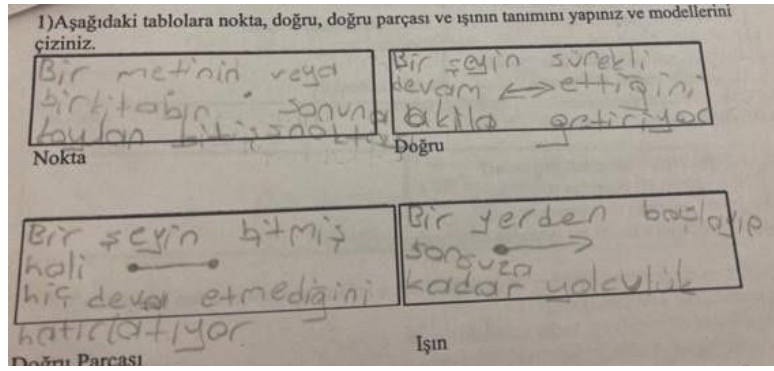 1)Aşağıdaki tablolara nokta, doğru, doğru parçası ve ışının tanımını yapınız ve modellerini
çiziniz.
Bir metinin veya
bir kitabın sonuna
koyulan bitiş noktası
Nokta
Bir şeyin sürekli
devam ettiğini
akıla getiriyor
Doğru
Bir şeyin bitmiş
hali
hiç deva etmediğini
hatırlatıyor
Doğru Parçası
Bir yerden başlayıp
sonsuza
kadar yolculuk
Işın